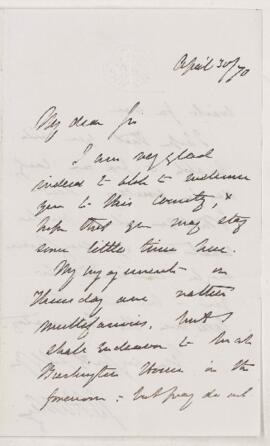 April 30/70
My dear Sir
I am very glad
indeed to be able to welcome
you to this country, &
hope that you may stay
some little time here.
My engagements on
Thursday are rather
multifarious, but I
shall endeavour to reach
Burlington House in the
forenoon: but pray do not